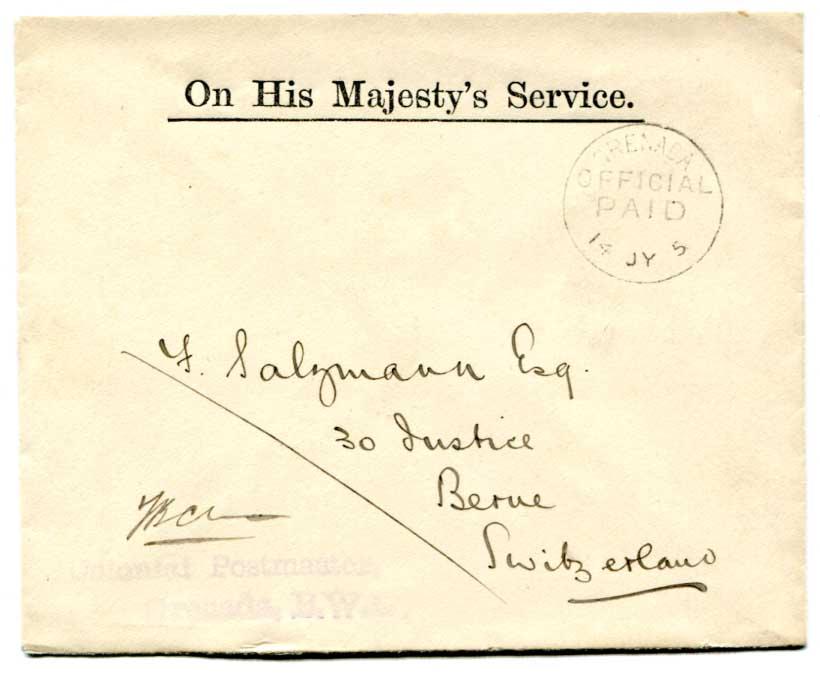 On His Majesty's Service.
GRENADA
OFFICIAL
PAID
14 JY 5
F. Salzmann Esq.
30 Justice
Berne
Switzerland
Colonial Postmaster,
Grenada, B.W.I.